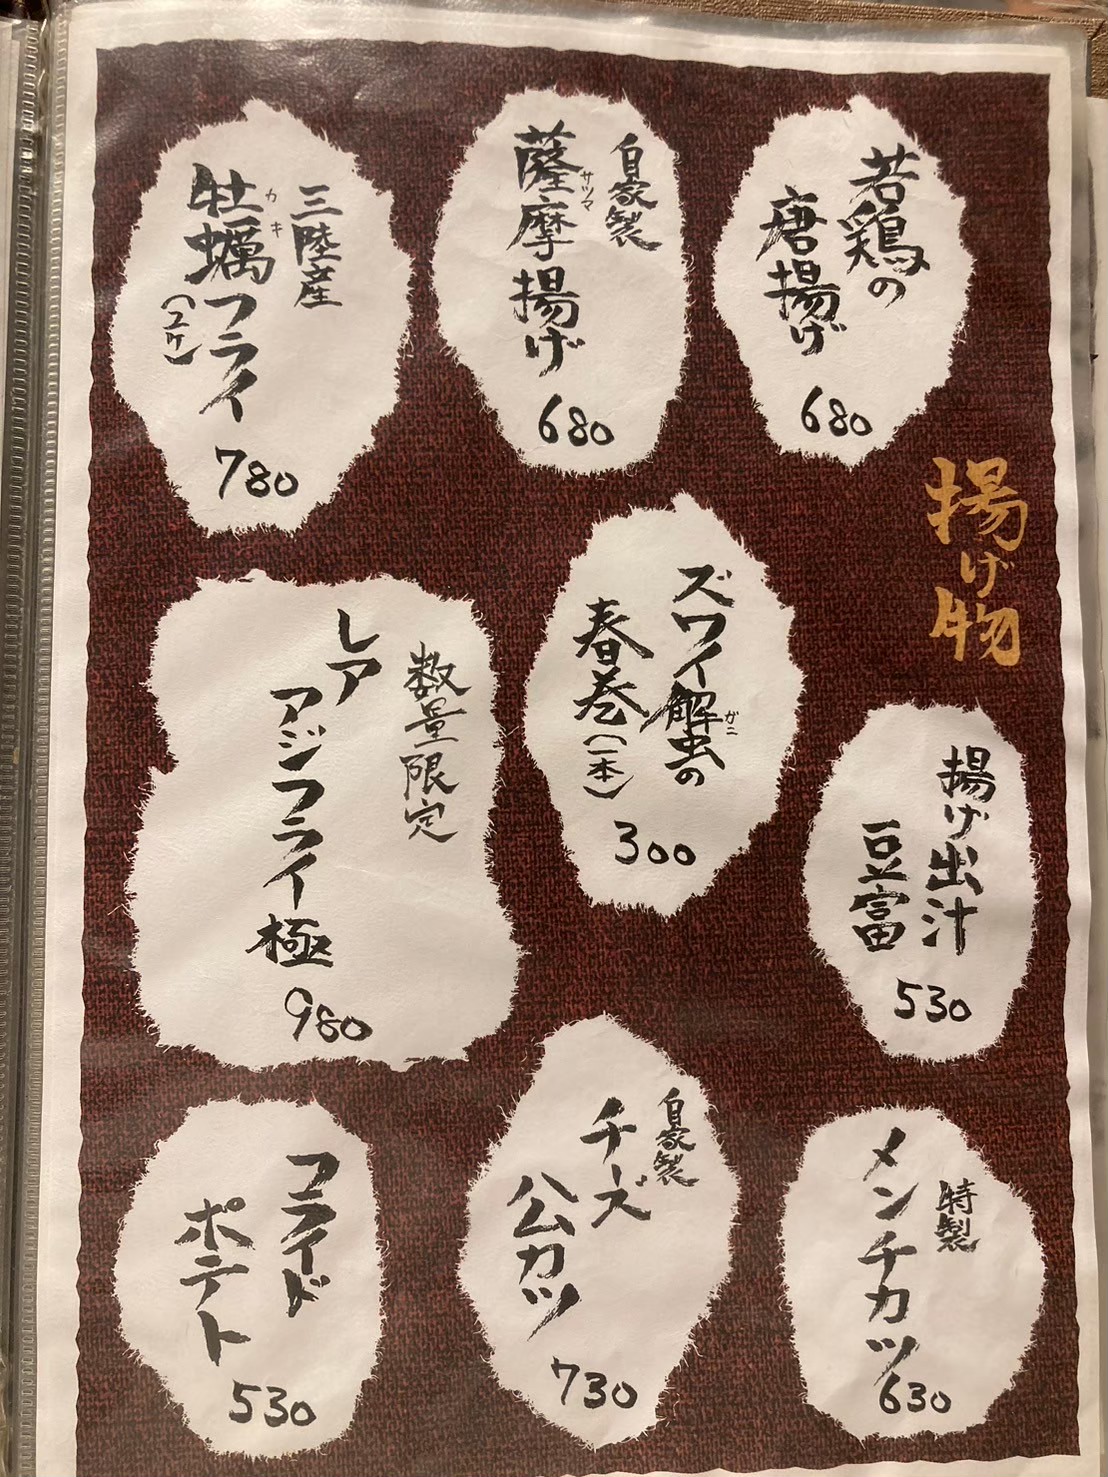 揚げ物
若鶏の
唐揚げ
680
自家製
薩摩揚げ
サツマ
680
三陸産
牡蠣フライ
カキ
(2ケ)
780
ズワイ蟹の
ガニ
春巻(一本)
300
数量限定
レア
アジフライ極
980
揚げ出汁
豆富
530
特製
メンチカツ
630
自家製
チーズ
公カツ
730
フライド
ポテト
530